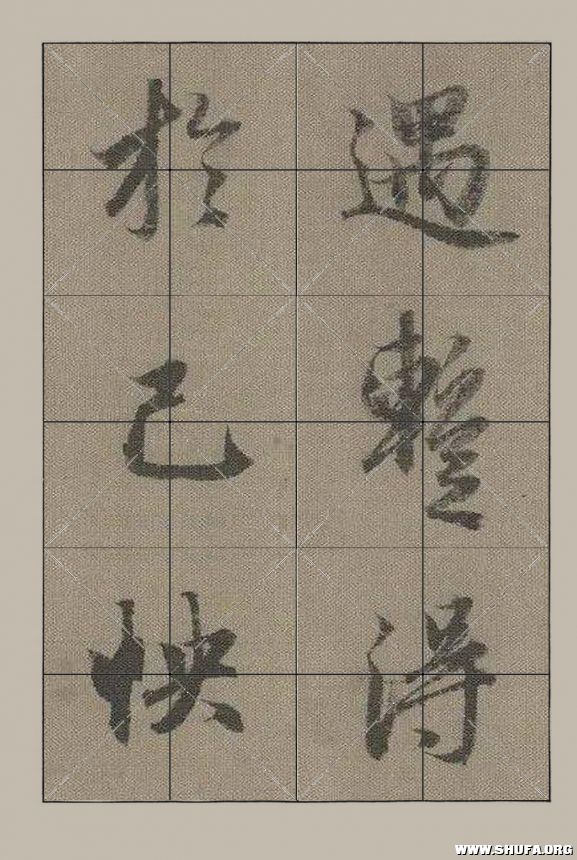 遇暫得
於己快
WWW.SHUFA.ORG